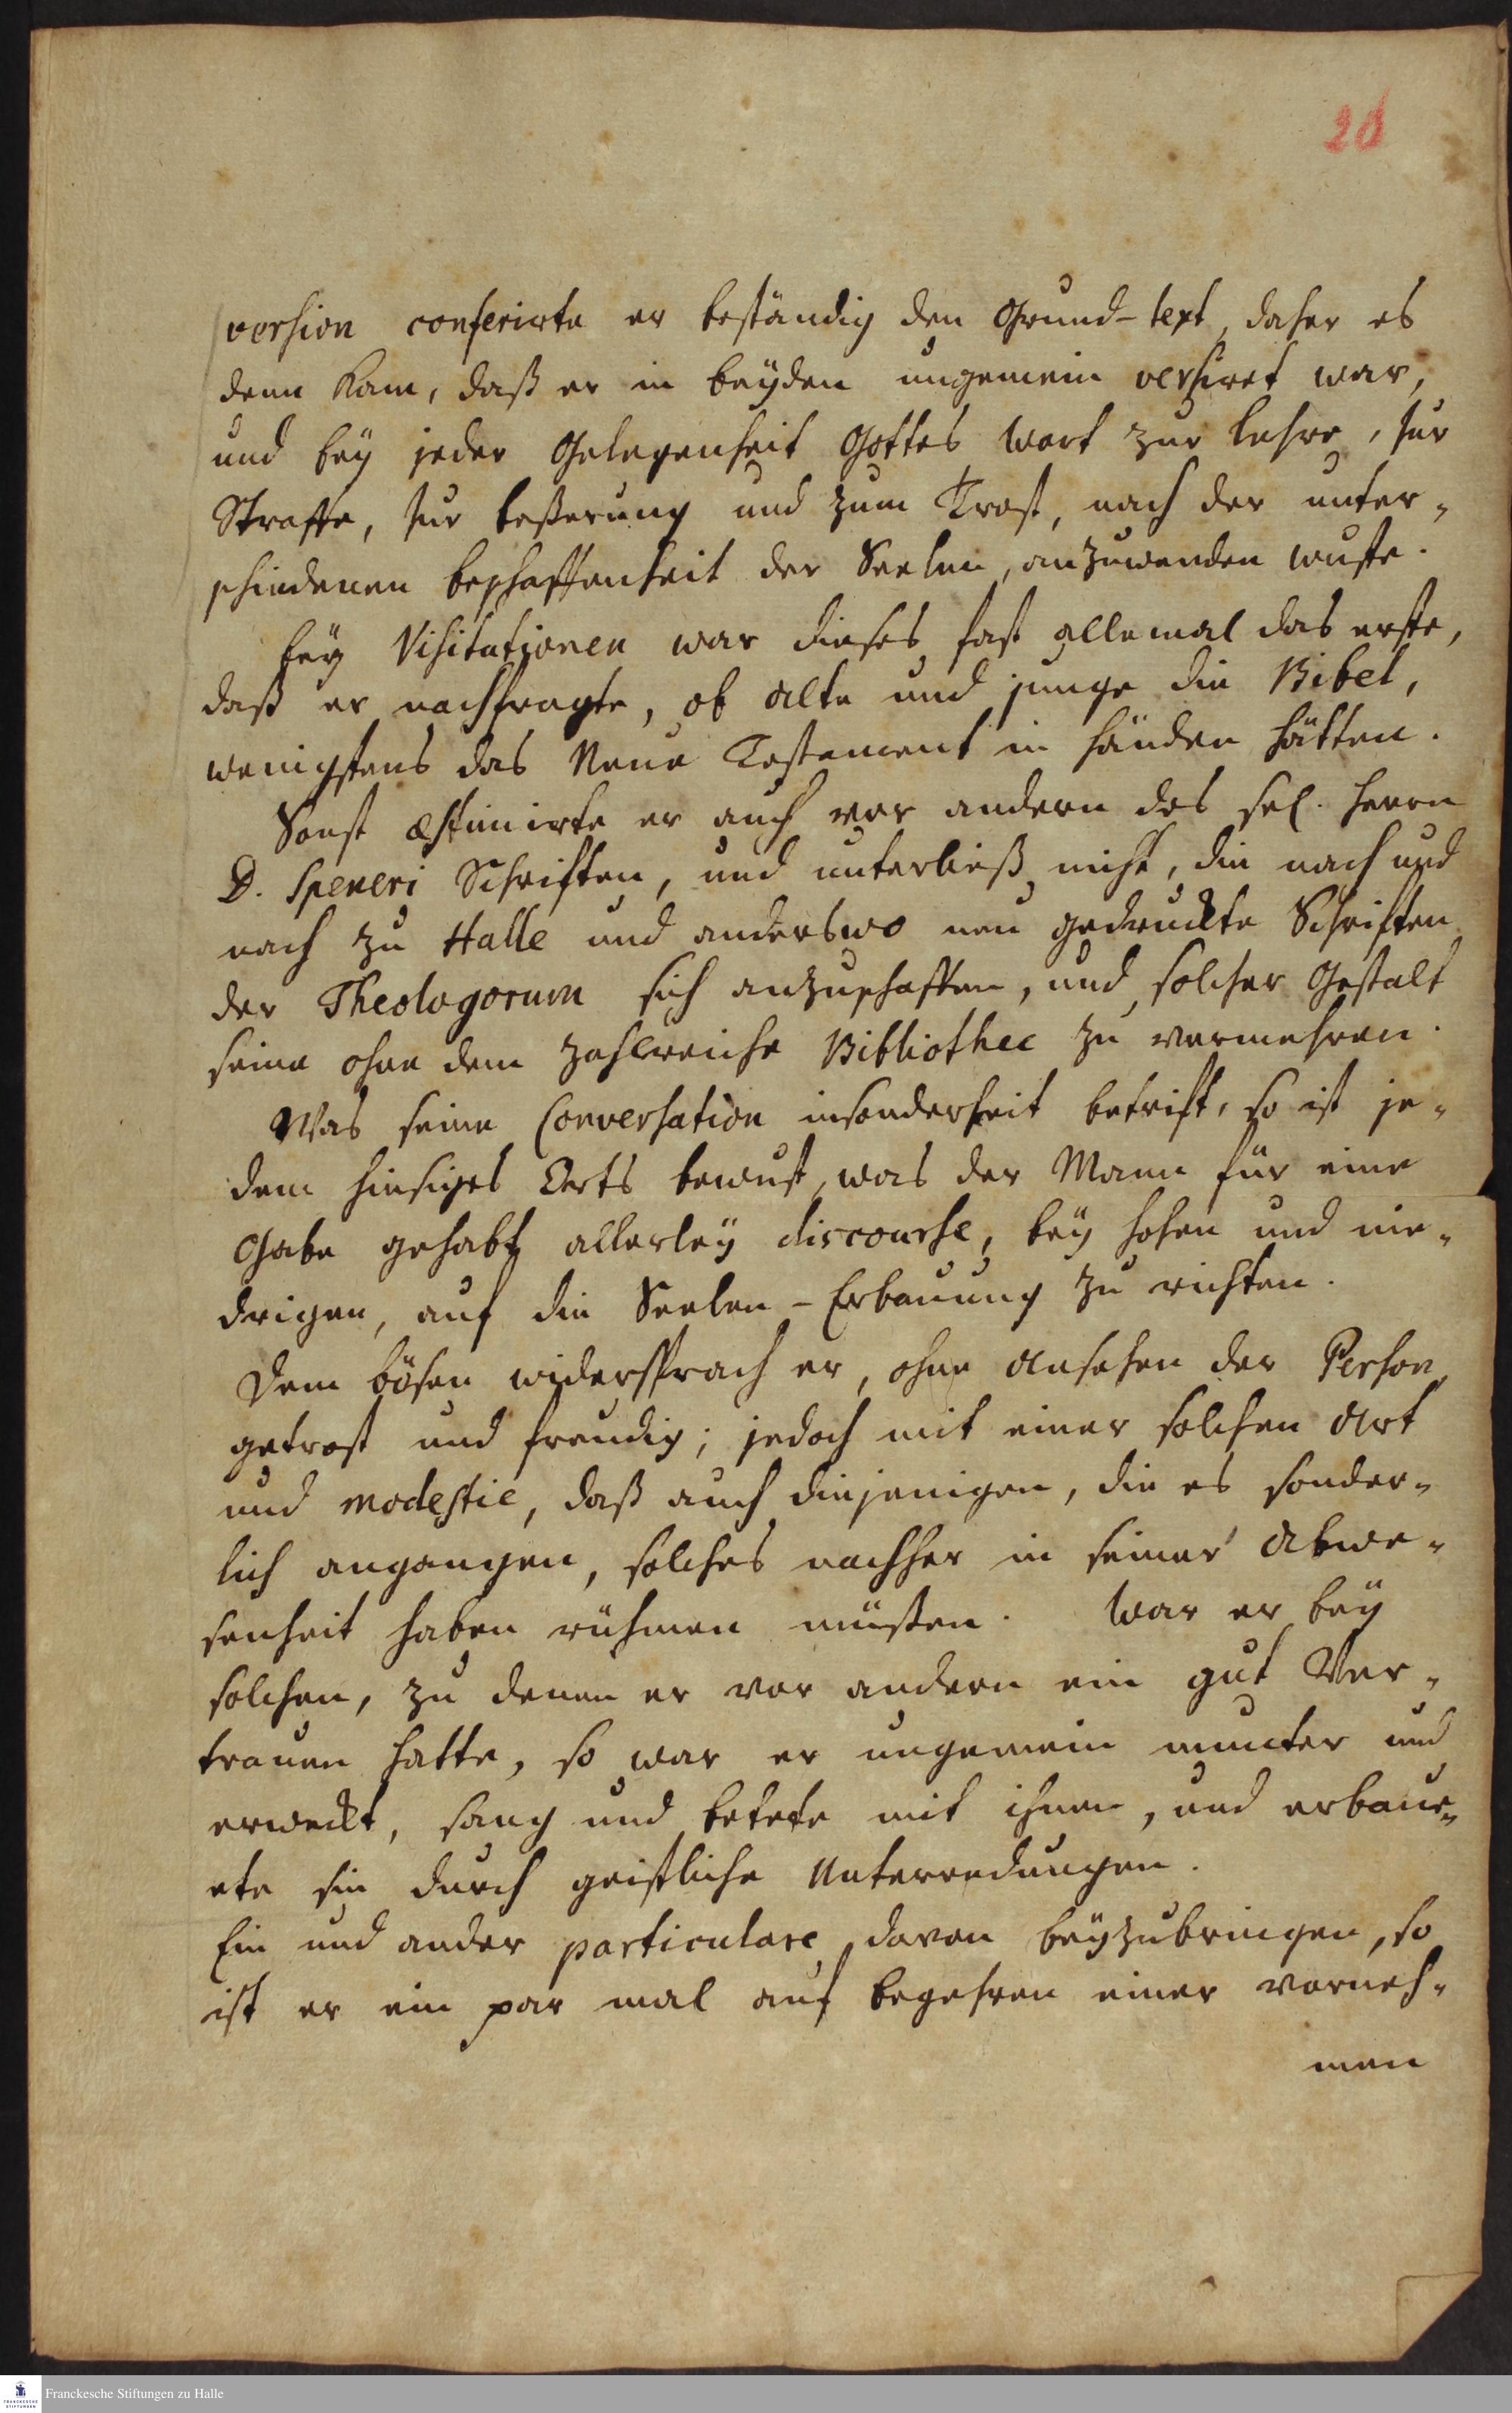 28
version conferirte er beständig den Grund-text, daher es
denn kam, daß er in beyden ungemein versiret war,
und bey jeder Gelegenheit Gottes Wort zur Lehre, zur
Straffe, zur beßerung und zum Trost, nach der unter-
schiedenen beschaffenheit der Seelen, anzuwenden wuste.
Bey Visitationen war dieses fast allemal das erste,
daß er nachfragte, ob alte und junge die Bibel,
wenigstens das Neue Testament in händen hätten.
Sonst æstimirte er auch vor andern des sel. Herrn
D. Speneri Schriften, und unterließ nicht, die nach und
nach zu Halle und anderswo neu gedruckte Schriften
der Theologorum sich anzuschaffen, und solcher Gestalt
seine ohne dem zahlreiche Bibliothec zu vermehren.
Was seine Conversation insonderheit betrift, so ist je-
dem hiesiges Orts bewust, was der Mann für eine
Gabe gehabt allerley discourse, bey hohen und nie-
drigen, auf die Seelen-Erbauung zu richten.
Dem bösen widersprach er, ohne Ansehen der Person,
getrost und freudig; jedoch mit einer solchen Art
und modestie, daß auch diejenigen, die es sonder-
lich angangen, solches nachher in seiner Abwe-
senheit haben rühmen müßen. War er bey
solchen, zu denen er vor andern ein gut Ver-
trauen hatte, so war er ungemein munter und
erweckt, sang und betete mit ihnen, und erbaue-
ete sie durch geistliche Unterredungen.
Ein und ander particulare davon beyzubringen, so
ist er ein par mal auf begehren einer vorneh-
men
Franckesche Stiftungen zu Halle